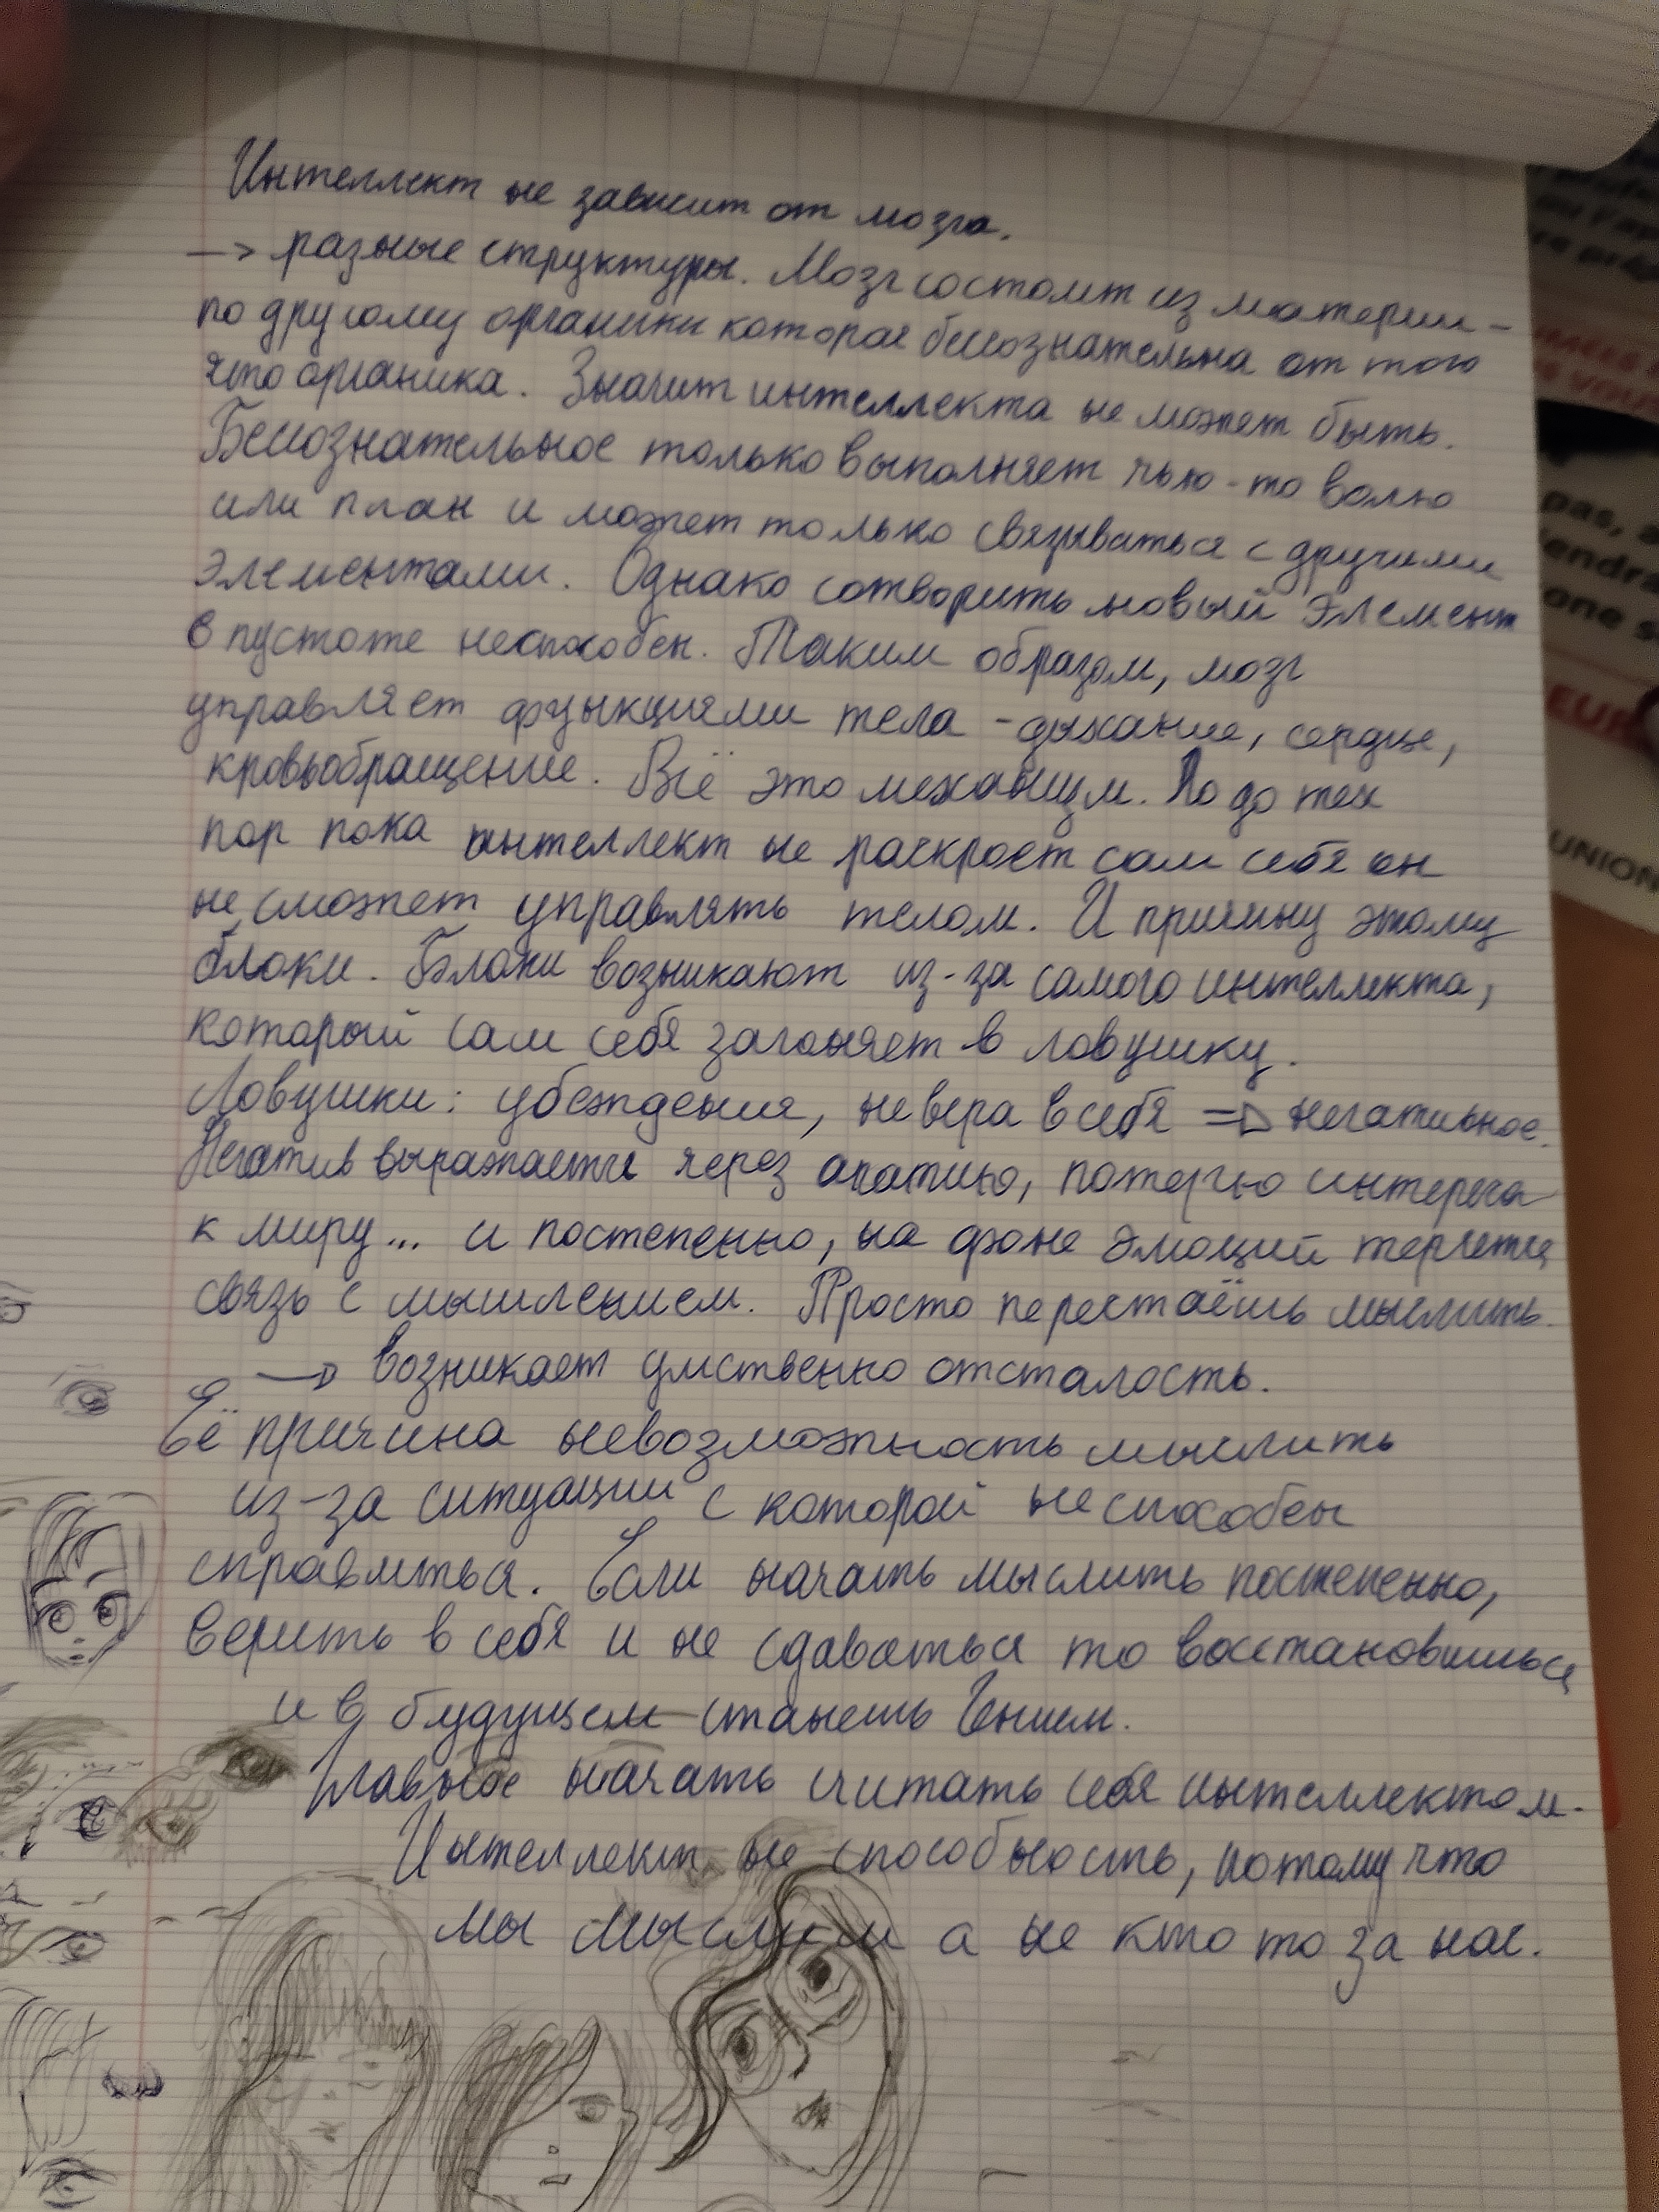 Интеллект не зависит от мозга.
–> разные структуры. Мозг состоит из материи –
по другому органики которая бессознательна от того
что органика. Значит интеллекта не может быть.
Бессознательное только выполняет чью-то волю
или план и может только связываться с другими
элементами. Однако сотворить новый элемент
в пустоте неспособен. Таким образом, мозг
управляет функциями тела – дыхание, сердце,
кровьобращение. Всё это механизм. Но до тех
пор пока интеллект не раскроет сам себя он
не сможет управлять телом. И причину этому
блоки. Блоки возникают из-за самого интеллекта,
который сам себя загоняет в ловушку.
Ловушки: убеждения, не вера в себя => негативное.
Негатив выражается через апатию, потерю интереса
к миру... и постепенно, на фоне эмоций теряется
связь с мышлением. Просто перестаёшь мыслить.
–> возникает умственно отсталость.
Её причина невозможность мыслить
из-за ситуации с которой неспособен
справиться. Если начать мыслить постепенно,
верить в себя и не сдаваться то восстановишься
и в будущем станешь Гением.
Главное начать считать себя интеллектом.
Интеллект не способность, потому что
мы мыслим а не кто то за нас.
pas,
endra
one s
EUR
UNION